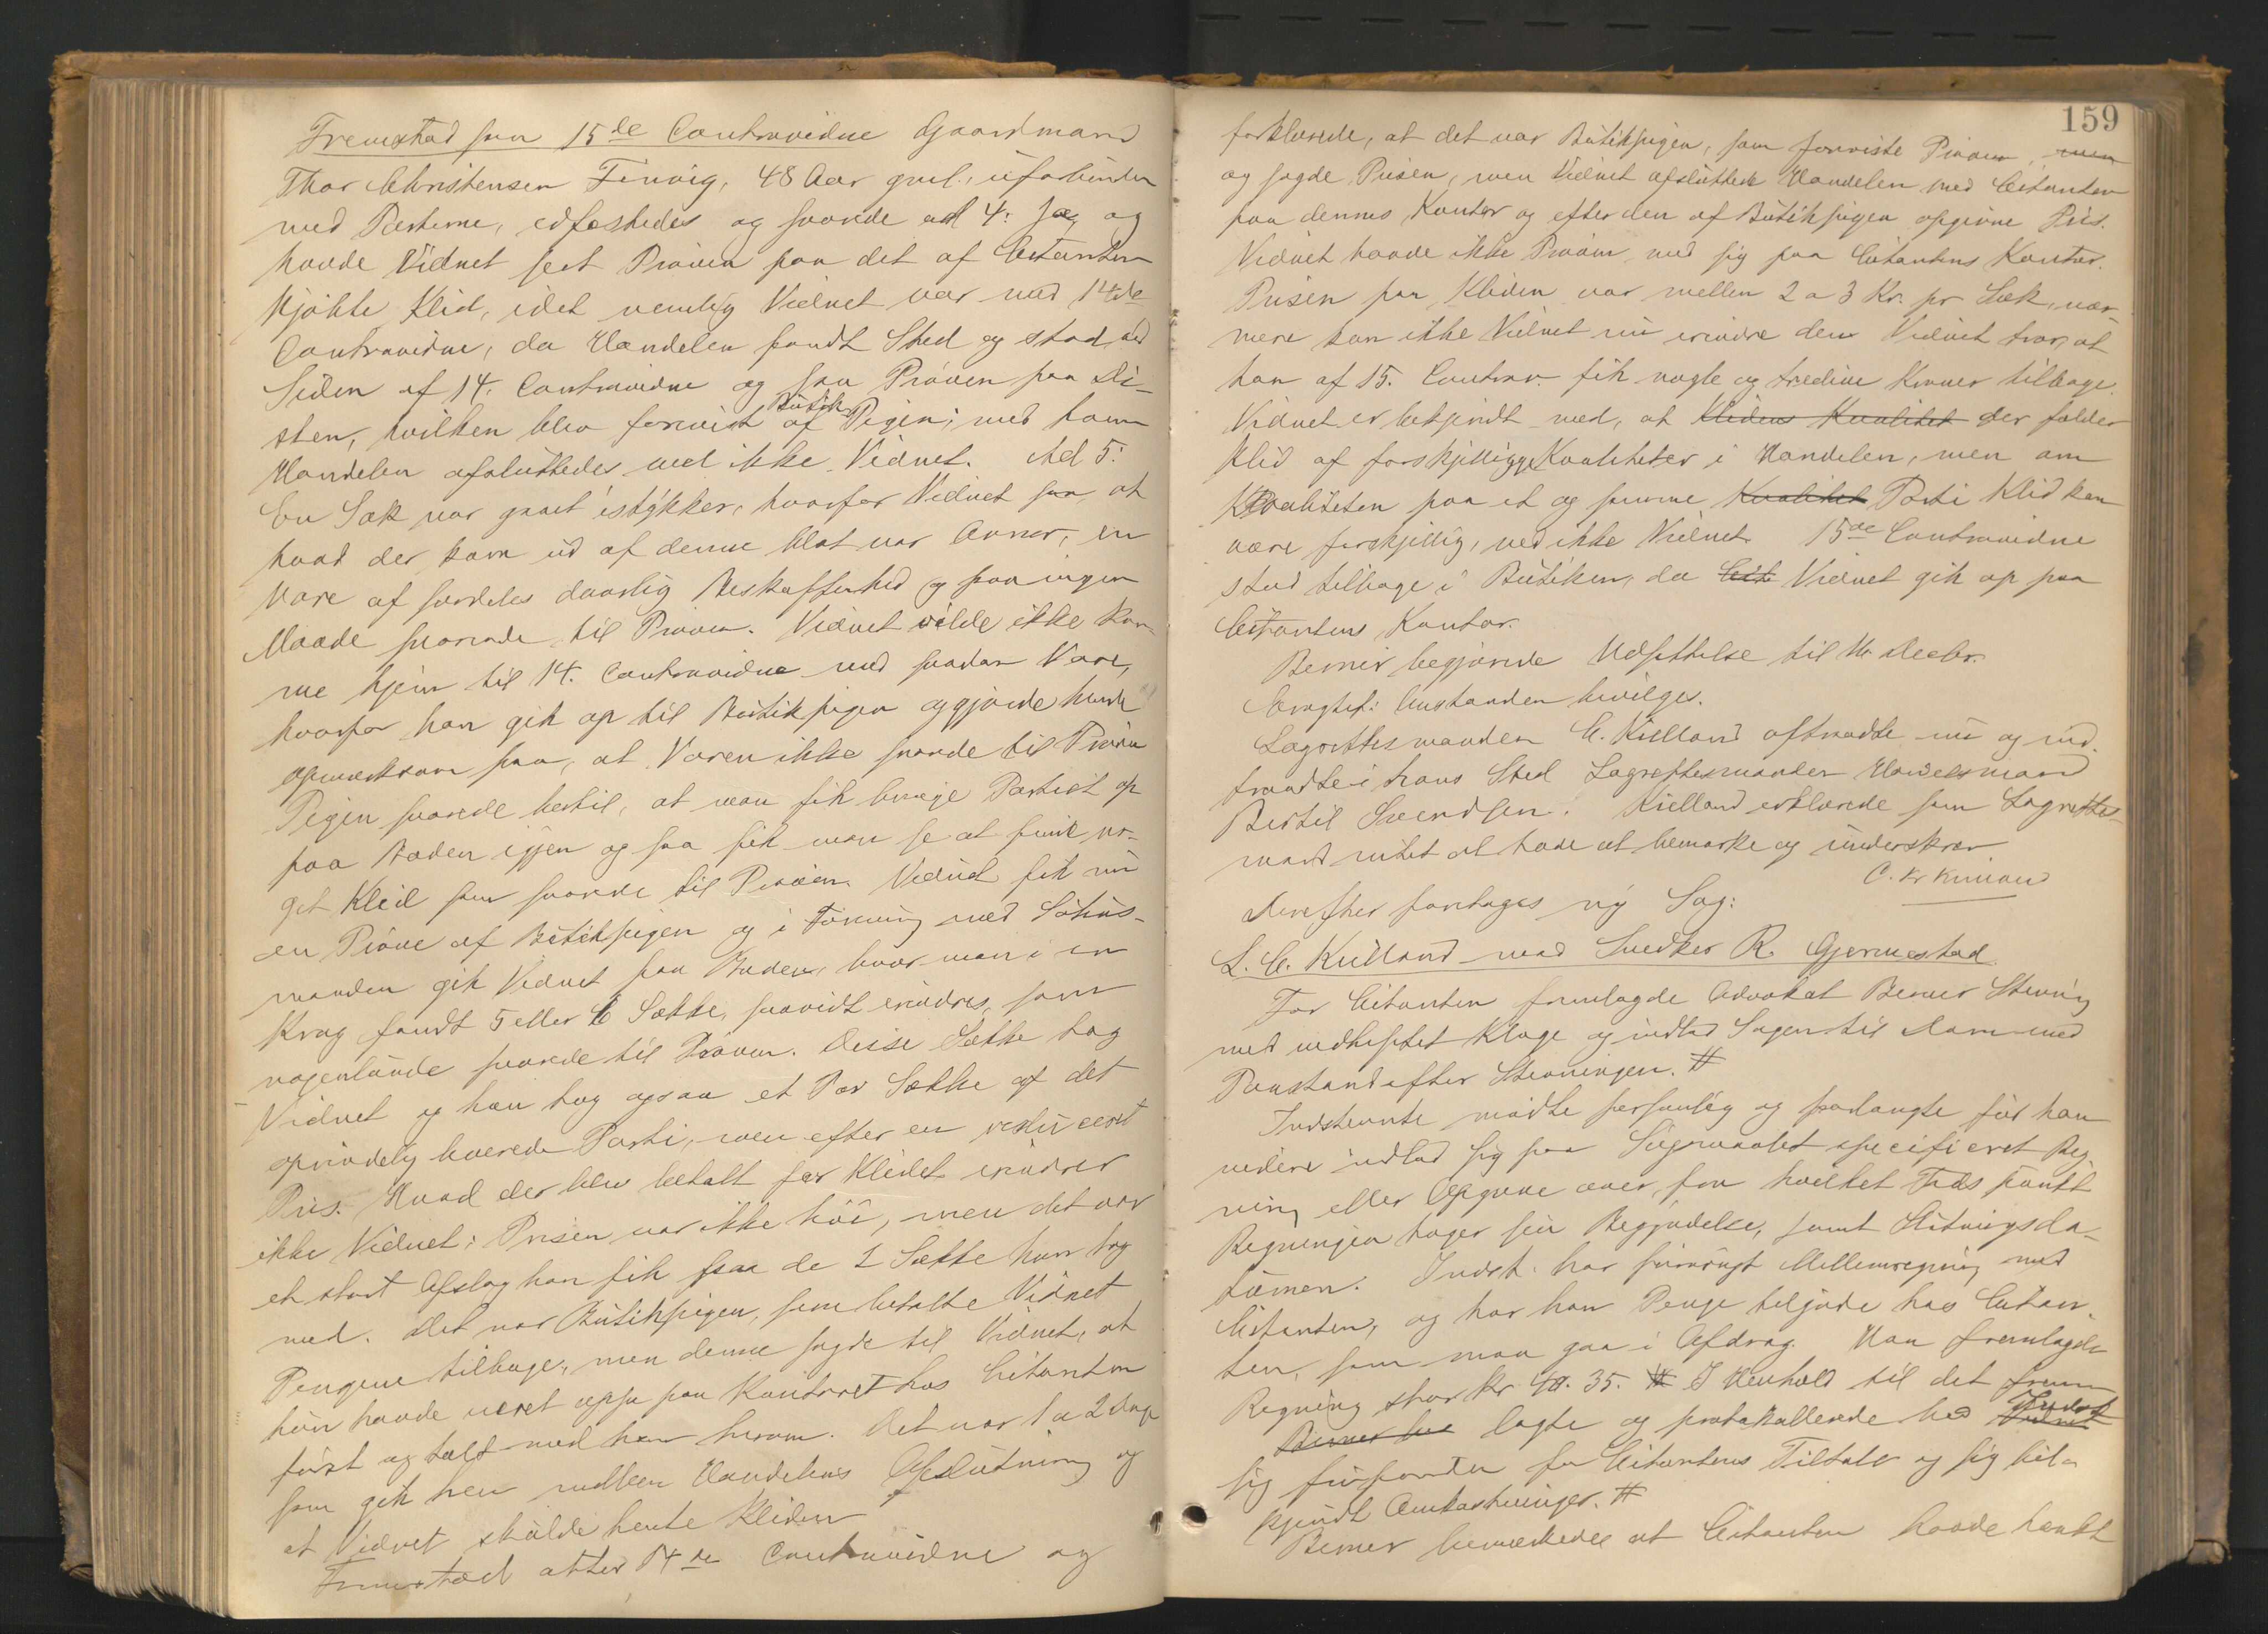 Fremstod som 15de Contravidne Gaardmand
Thor Christensen Finvig, 48 Aar gml., uforbunden
med Parterne, edfæstedes og svarede ad 4: Ja, og
havde Vidnet seet Prøven paa det af Citanten
kjøbte Klid, idet nemlig Vidnet var med 14de
Contravidne, da Handelen fandt Sted og stod ved
Siden af 14. Contravidne og saa Prøven paa Di-
sken, hvilken blev forevist af Butik Pigen; med ham
Handelen afsluttedes ved ikke Vidnet. Ad 5:
En Sæk var gaaet istykker, hvorfor Vidnet saa, at
hvad der kom ud af denne blot var Avner, en
Vare af særdeles daarlig Beskaffenhed og paa ingen
Maade svarende til Prøven. Vidnet vilde ikke kom-
me hjem til 14. Contravidne med saadan Vare,
hvorfor han gik op til Butikpigen og gjorde hende
opmærksom paa, at Varen ikke svarede til Prøven
Pigen svarede hertil, at man fik bringe Partiet op
paa Boden igjen og saa fik man se at finde no-
get Klid som svarede til Prøven. Vidnet fik nu
en Prøve af Butikpigen og i Forening med Søhus-
manden gik Vidnet paa Boden, hvor man i en
Krog fandt 5 eller 6 Sække, saavidt erindres, som
nogenlunde svarede til Prøven. Disse Sække tog
Vidnet og han tog ogsaa et Par Sække af det
oprindelig leverede Parti, men efter en reduceret
Pris. Hvad der blev betalt for Klidet erindrer
ikke Vidnet; Prisen var ikke høi, men det var
et stort Afslag han fik paa de 2 Sække han tog
med. Det var Butikpigen, som betalte Vidnet
Pengene tilbage, men denne sagde til Vidnet, at
hun havde været oppe paa Kontoret hos Citanten
først og talt med ham herom. Det var 1 a 2 Dage
som gik hen mellem Handelens Afslutning og
at Vidnet skulde hente Kliden
Fremstod atter 14de Contravidne og
159
forklarede, at det var Butikpigen, som foreviste Prøven, men
og sagde Prisen, men Vidnet afsluttede Handelen med Citanten
paa dennes Kontor og efter den af Butikpigen opgivne Pris.
Vidnet havde ikke Prøven med sig paa Citantens Kontor.
Prisen paa Kliden var mellem 2 a 3 Kr. pr Sæk, nær-
mere kan ikke Vidnet nu erindre den Vidnet tror, at
han af 15. Contrav. fik nogle og tredive Kroner tilbage.
Vidnet er bekjendt med, at Klidens Kvalitet der falder
Klid af forskjellige Kvaliteter i Handelen, men om
Kvaliteten paa et og samme Kvalitet Parti Klid kan
være forskjellig, ved ikke Vidnet. 15de Contravidne
stod tilbage i Butiken, da Cit Vidnet gik op paa
Citantens Kontor.
Berner begjærede Udsættelse til 14. Decbr.
Eragtet: Anstanden bevilges.
Lagrettesmanden C. Kielland aftraadte nu og ind-
traadte i hans Sted Lagrettesmanden Handelsmand
Bertil Svendsen. Kielland erklærede som Lagrettes-
mand intet at have at bemærke og underskrev
Derefter foretoges ny Sag:
L. C. Kielland mod Snedker R. Gjermestad
For Citanten fremlagde Advokat Berner Stevning
med vedheftet Klage og indlod Sagen til Dom med
Paastand efter Stevningen. #
Indstevnte mødte personlig og forlangte før han
videre indlod sig paa Søgsmaalet specificeret Reg-
ning eller Opgave over, fra hvilket Tidspunkt
Regningen tager sin Begyndelse, samt Slutningsda-
tumen. Indst. har forøvrigt Mellemregning med
Citanten, og har han Penge tilgode hos Citan-
ten, som maa gaa i Afdrag. Han fremlagde
Regning stor Kr 40. 35. # I Henhold til det frem-
Berner be lagte og protokollerede bad Vidnet Indst
sig frifunden for Citantens Tiltale og sig til-
kjendt Omkostninger. #
Berner bemærkede at Citanten havde tænkt